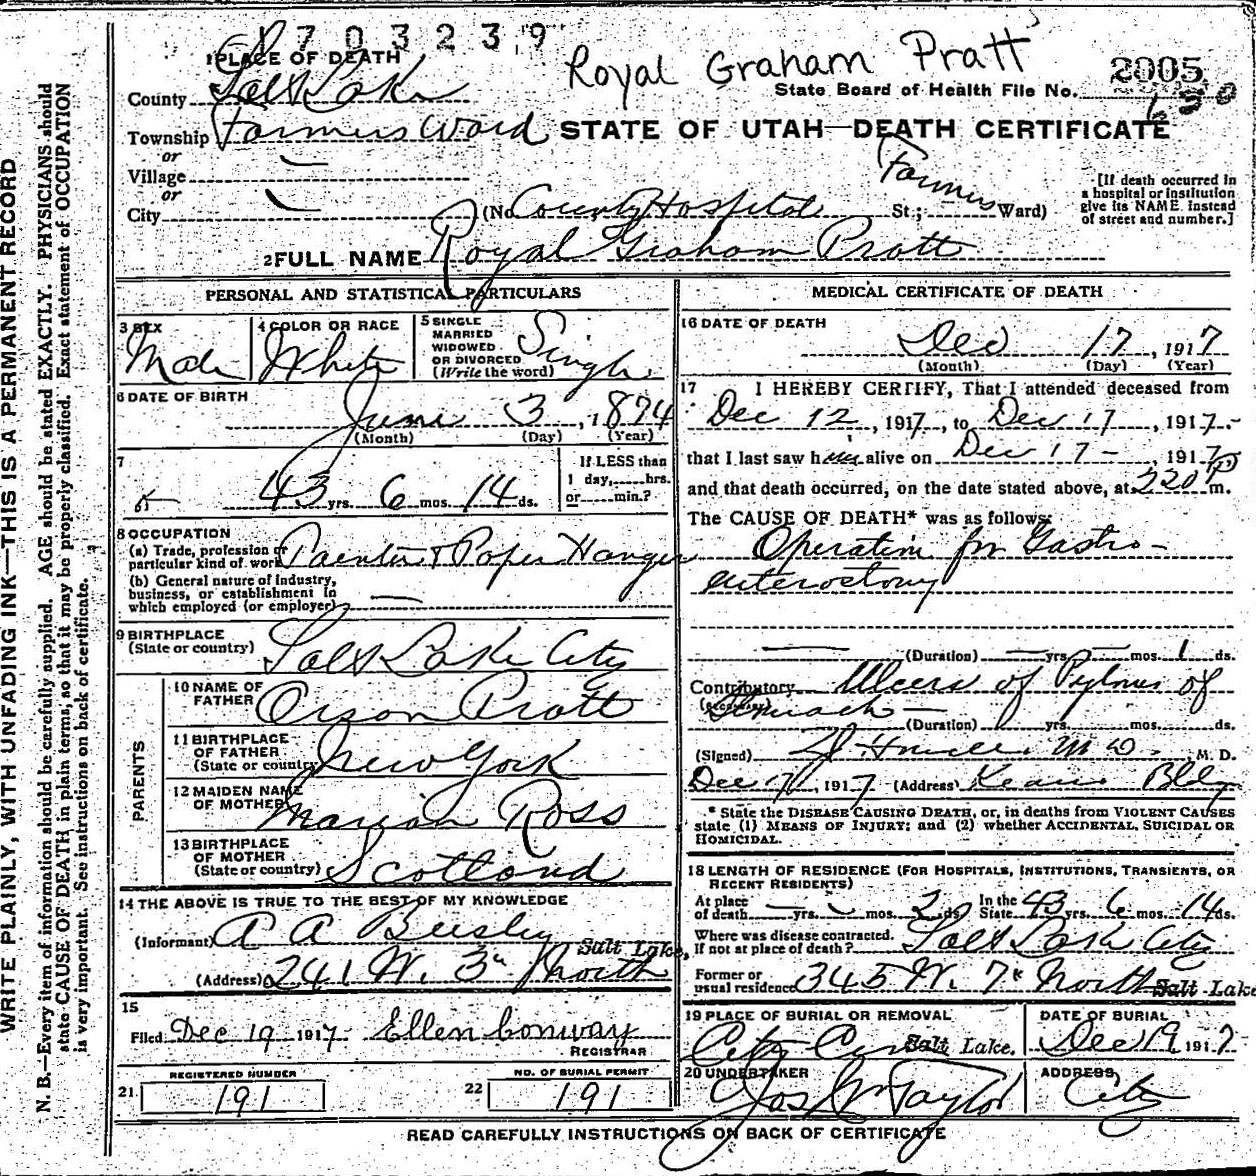 1703239
Royal Graham Pratt
2005
State Board of Health File No.
1 PLACE OF DEATH
County Salt Lake
Township Farmers Ward
or
Village
or
City
STATE OF UTAH—DEATH CERTIFICATE
(No County Hospital St.; Farmers Ward)
[If death occurred in
a hospital or institution
give its NAME instead
of street and number.]
2 FULL NAME Royal Graham Pratt
PERSONAL AND STATISTICAL PARTICULARS
3 SEX
Male
4 COLOR OR RACE
White
5 SINGLE
MARRIED
WIDOWED
OR DIVORCED
(Write the word)
Single
6 DATE OF BIRTH
June 3, 1874
(Month) (Day) (Year)
7
43 yrs. 6 mos. 14 ds.
If LESS than
1 day, hrs.
or min.?
8 OCCUPATION
(a) Trade, profession or
particular kind of work Painter & Paper Hanger
(b) General nature of industry,
business, or establishment in
which employed (or employer)
9 BIRTHPLACE
(State or country) Salt Lake City
PARENTS
10 NAME OF
FATHER Orson Pratt
11 BIRTHPLACE
OF FATHER
(State or country) New York
12 MAIDEN NAME
OF MOTHER Marion Ross
13 BIRTHPLACE
OF MOTHER
(State or country) Scotland
14 THE ABOVE IS TRUE TO THE BEST OF MY KNOWLEDGE
(Informant) A A Beesley
Salt Lake,
(Address) 241 W. 3rd North
15
Filed Dec 19 1917 Ellen Conway
REGISTRAR
REGISTERED NUMBER
21. 191
NO. OF BURIAL PERMIT
22 191
MEDICAL CERTIFICATE OF DEATH
16 DATE OF DEATH
Dec 17, 1917
(Month) (Day) (Year)
17 I HEREBY CERTIFY, That I attended deceased from
Dec 12, 1917, to Dec 17, 1917.
that I last saw him alive on Dec 17, 1917
and that death occurred, on the date stated above, at 220 P m.
The CAUSE OF DEATH* was as follows:
Operation for Gastro-
enterostomy
(Duration) yrs. mos. 1 ds.
Contributory Ulcers of Pylorus of
(SECONDARY) Stomach
(Duration) yrs. mos. ds.
(Signed) M.D. M. D.
Dec 17, 1917 (Address) Keans Bldg
* State the DISEASE CAUSING DEATH, or, in deaths from VIOLENT CAUSES
state (1) MEANS OF INJURY; and (2) whether ACCIDENTAL, SUICIDAL OR
HOMICIDAL.
18 LENGTH OF RESIDENCE (FOR HOSPITALS, INSTITUTIONS, TRANSIENTS, OR
RECENT RESIDENTS)
At place
of death yrs. mos. 2 ds. In the
State 43 yrs. 6 mos. 14 ds.
Where was disease contracted.
If not at place of death? Salt Lake City
Former or
usual residence 345 W. 7th North Salt Lake
19 PLACE OF BURIAL OR REMOVAL
City Cem Salt Lake.
DATE OF BURIAL
Dec 19, 1917
20 UNDERTAKER
Jos Wm Taylor
ADDRESS
City
READ CAREFULLY INSTRUCTIONS ON BACK OF CERTIFICATE
WRITE PLAINLY, WITH UNFADING INK—THIS IS A PERMANENT RECORD
N. B.—Every item of information should be carefully supplied. AGE should be stated EXACTLY. PHYSICIANS should
state CAUSE OF DEATH in plain terms, so that it may be properly classified. Exact statement of OCCUPATION
is very important. See instructions on back of certificate.